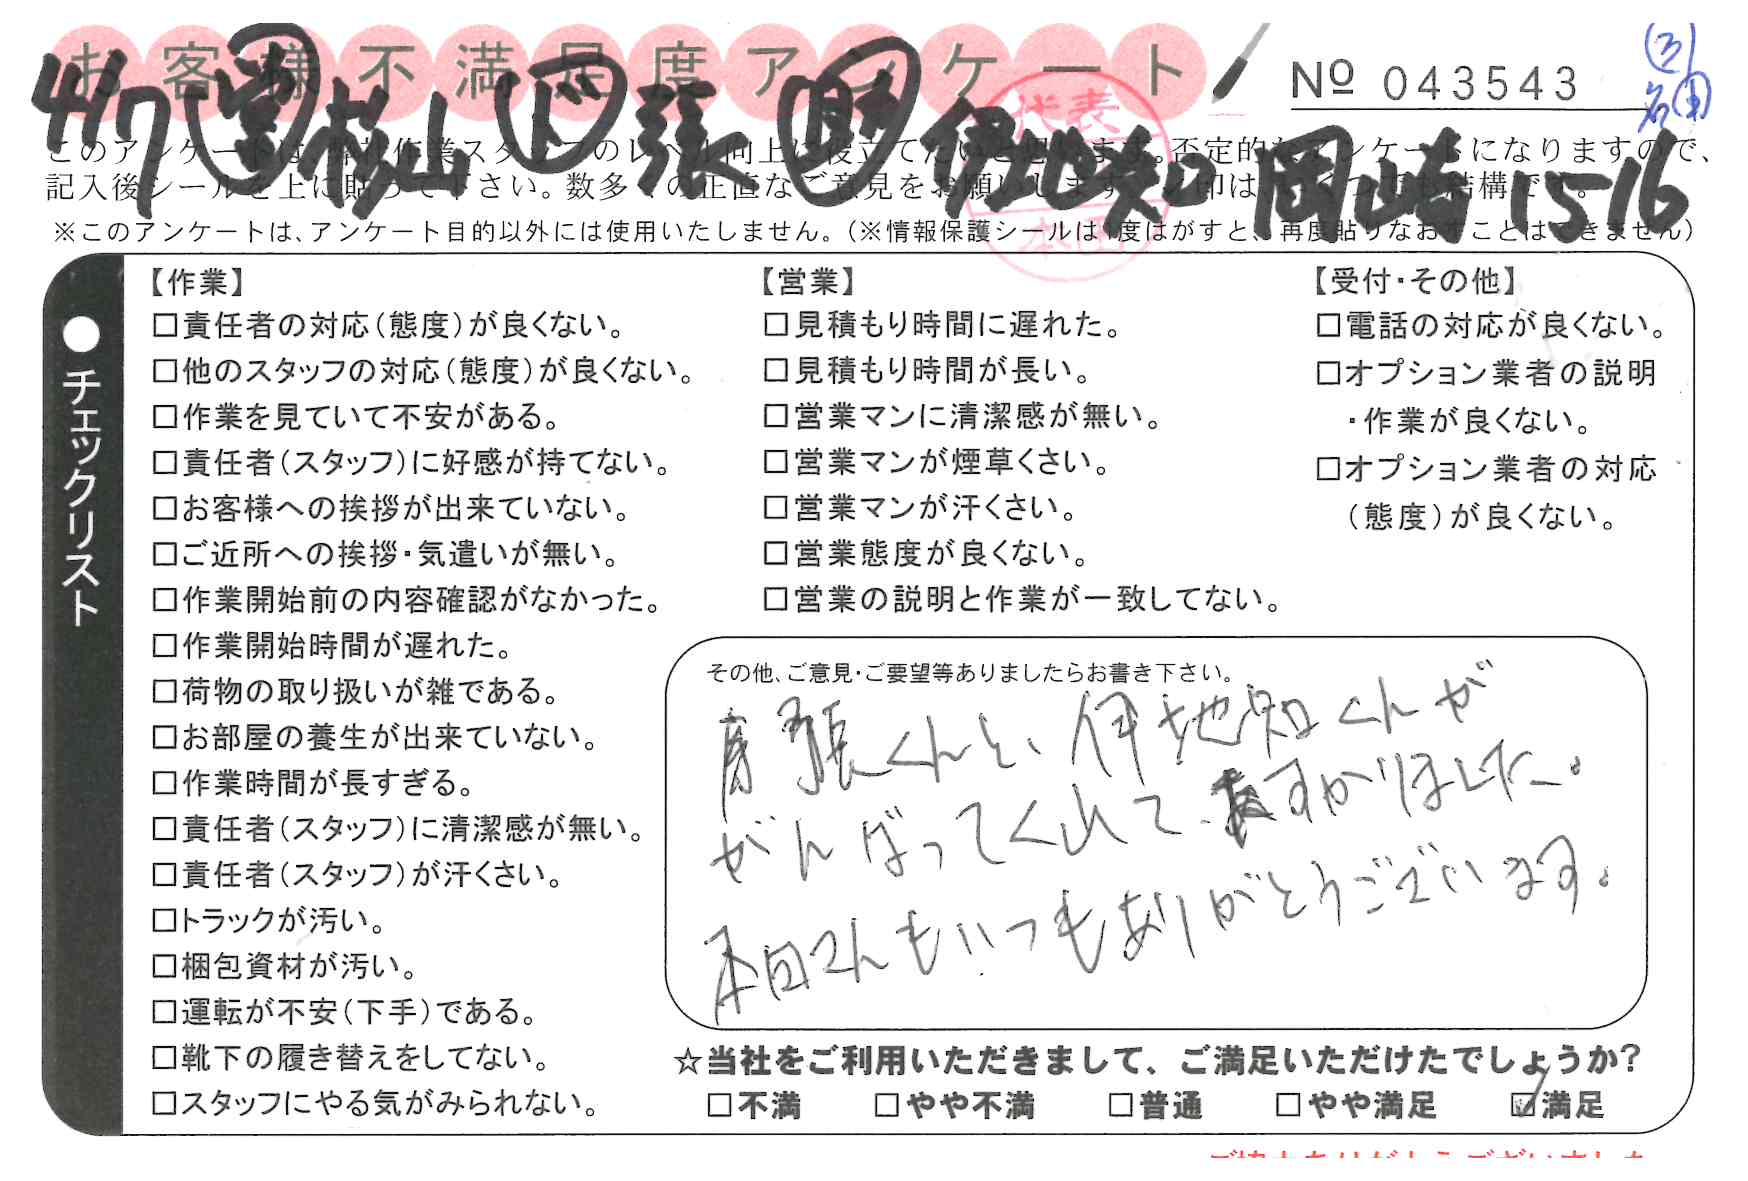 お客様不満足度アンケート
NO 043543
4/17 営 松山 下 張 助 伊地知 岡崎 15-16
このアンケートは、弊社作業スタッフのレベル向上に役立てたいと思います。否定的なアンケートになりますので、
記入後シールを上に貼って下さい。数多くの正直なご意見をお願いします
結構です。
※このアンケートは、アンケート目的以外には使用いたしません。（※情報保護シールは1度はがすと、再度貼りなおすことはできません）
代表
本田
●チェックリスト
【作業】
□責任者の対応（態度）が良くない。
□他のスタッフの対応（態度）が良くない。
□作業を見ていて不安がある。
□責任者（スタッフ）に好感が持てない。
□お客様への挨拶が出来ていない。
□ご近所への挨拶・気遣いが無い。
□作業開始前の内容確認がなかった。
□作業開始時間が遅れた。
□荷物の取り扱いが雑である。
□お部屋の養生が出来ていない。
□作業時間が長すぎる。
□責任者（スタッフ）に清潔感が無い。
□責任者（スタッフ）が汗くさい。
□トラックが汚い。
□梱包資材が汚い。
□運転が不安（下手）である。
□靴下の履き替えをしてない。
□スタッフにやる気がみられない。
【営業】
□見積もり時間に遅れた。
□見積もり時間が長い。
□営業マンに清潔感が無い。
□営業マンが煙草くさい。
□営業マンが汗くさい。
□営業態度が良くない。
□営業の説明と作業が一致してない。
【受付・その他】
□電話の対応が良くない。
□オプション業者の説明
・作業が良くない。
□オプション業者の対応
（態度）が良くない。
その他、ご意見・ご要望等ありましたらお書き下さい。
張くんと、伊地知くんが
がんばってくれて、たすかりました。
本田さんもいつもありがとうございます。
☆当社をご利用いただきまして、ご満足いただけたでしょうか？
□不満 □やや不満 □普通 □やや満足 ☑満足
ご協力ありがとうございました